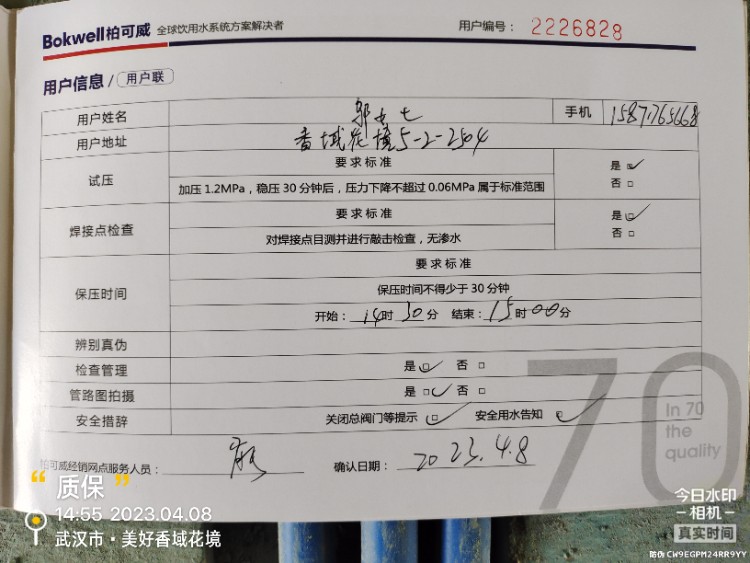 Bokwell柏可威 全球饮用水系统方案解决者 用户编号： 2226828
用户信息 / 用户联
用户姓名 郭 七 手机 15871765668
用户地址 香域花境5-2-2504
试压 要求标准 是
加压1.2MPa，稳压30分钟后，压力下降不超过0.06MPa属于标准范围 否
焊接点检查 要求标准 是
对焊接点目测并进行敲击检查，无渗水 否
保压时间 要求标准
保压时间不得少于30分钟
开始：14时30分 结束：15时00分
辨别真伪
检查管理 是 否
管路图拍摄 是 否
安全措辞 关闭总阀门等提示 安全用水告知
70
In 70
the
quality
柏可威经销网点服务人员： 确认日期： 2023.4.8
“质保”
14:55 2023.04.08
武汉市·美好香域花境
今日水印
-相机-
真实时间
防伪 CW9EGPM24RR9YY